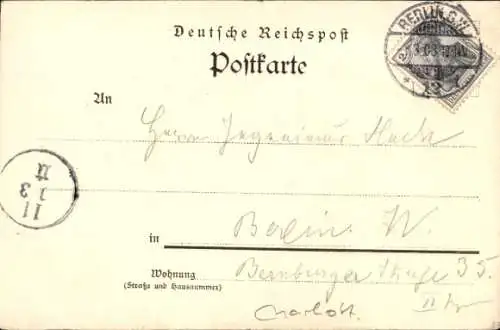 Deutsche Reichspost
BERLIN S.W.
Postkarte
An
Herrn Ingenieur
Berlin W.
in
Wohnung
Bernburger Straße 35.
(Straße und Hausnummer)
II